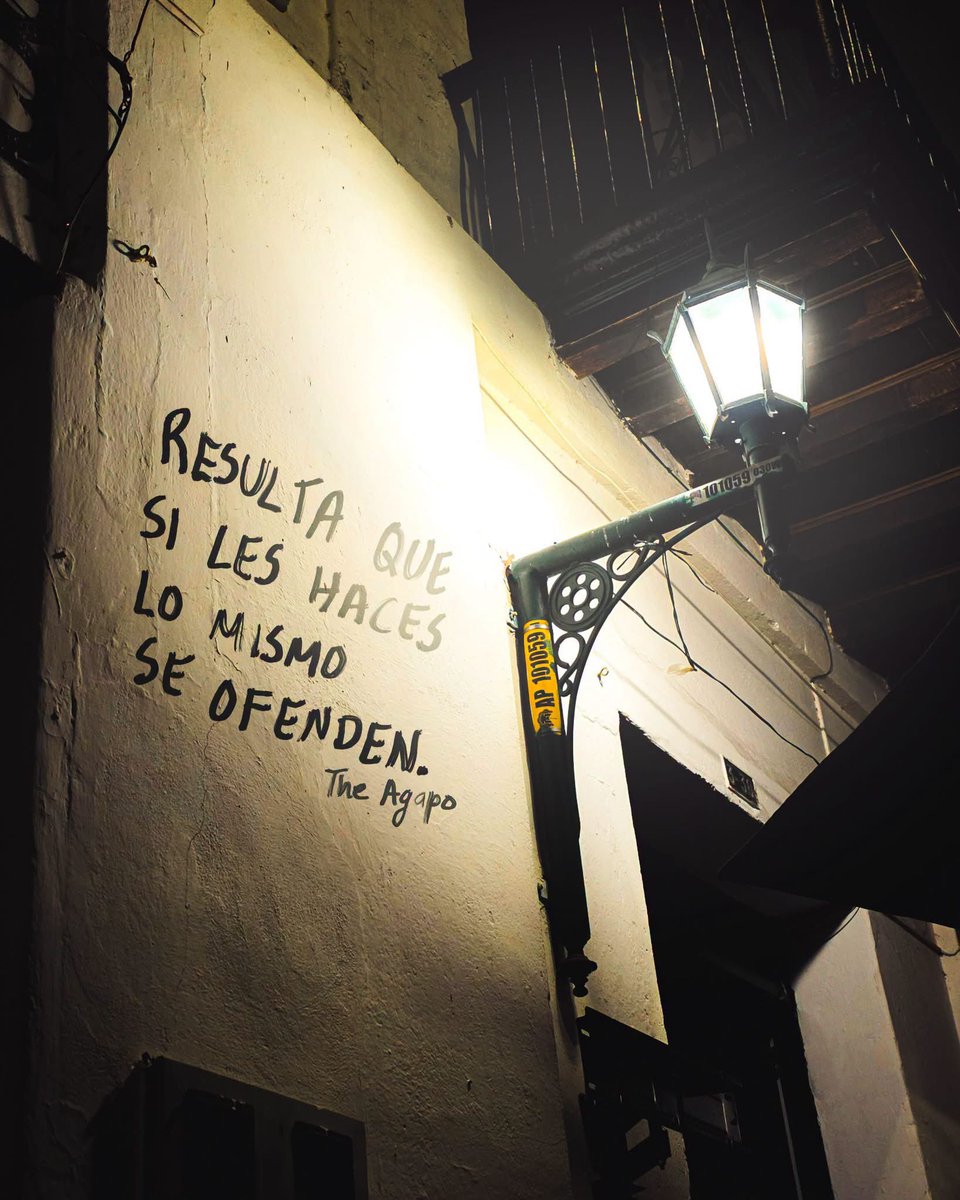 RESULTA QUE
SI LES HACES
LO MISMO
SE OFENDEN.
The Agapo
101059
AP 101059